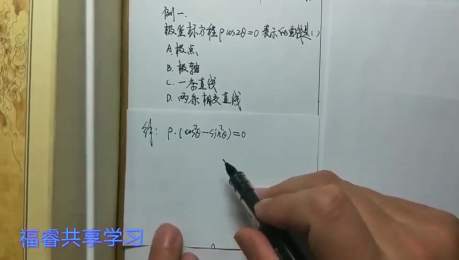 例一.
极坐标方程 ρcos2θ=0 表示的曲线是( )
A. 极点
B. 极轴
C. 一条直线
D. 两条相交直线
解: ρ·(cos²θ-sin²θ)=0
福睿共享学习